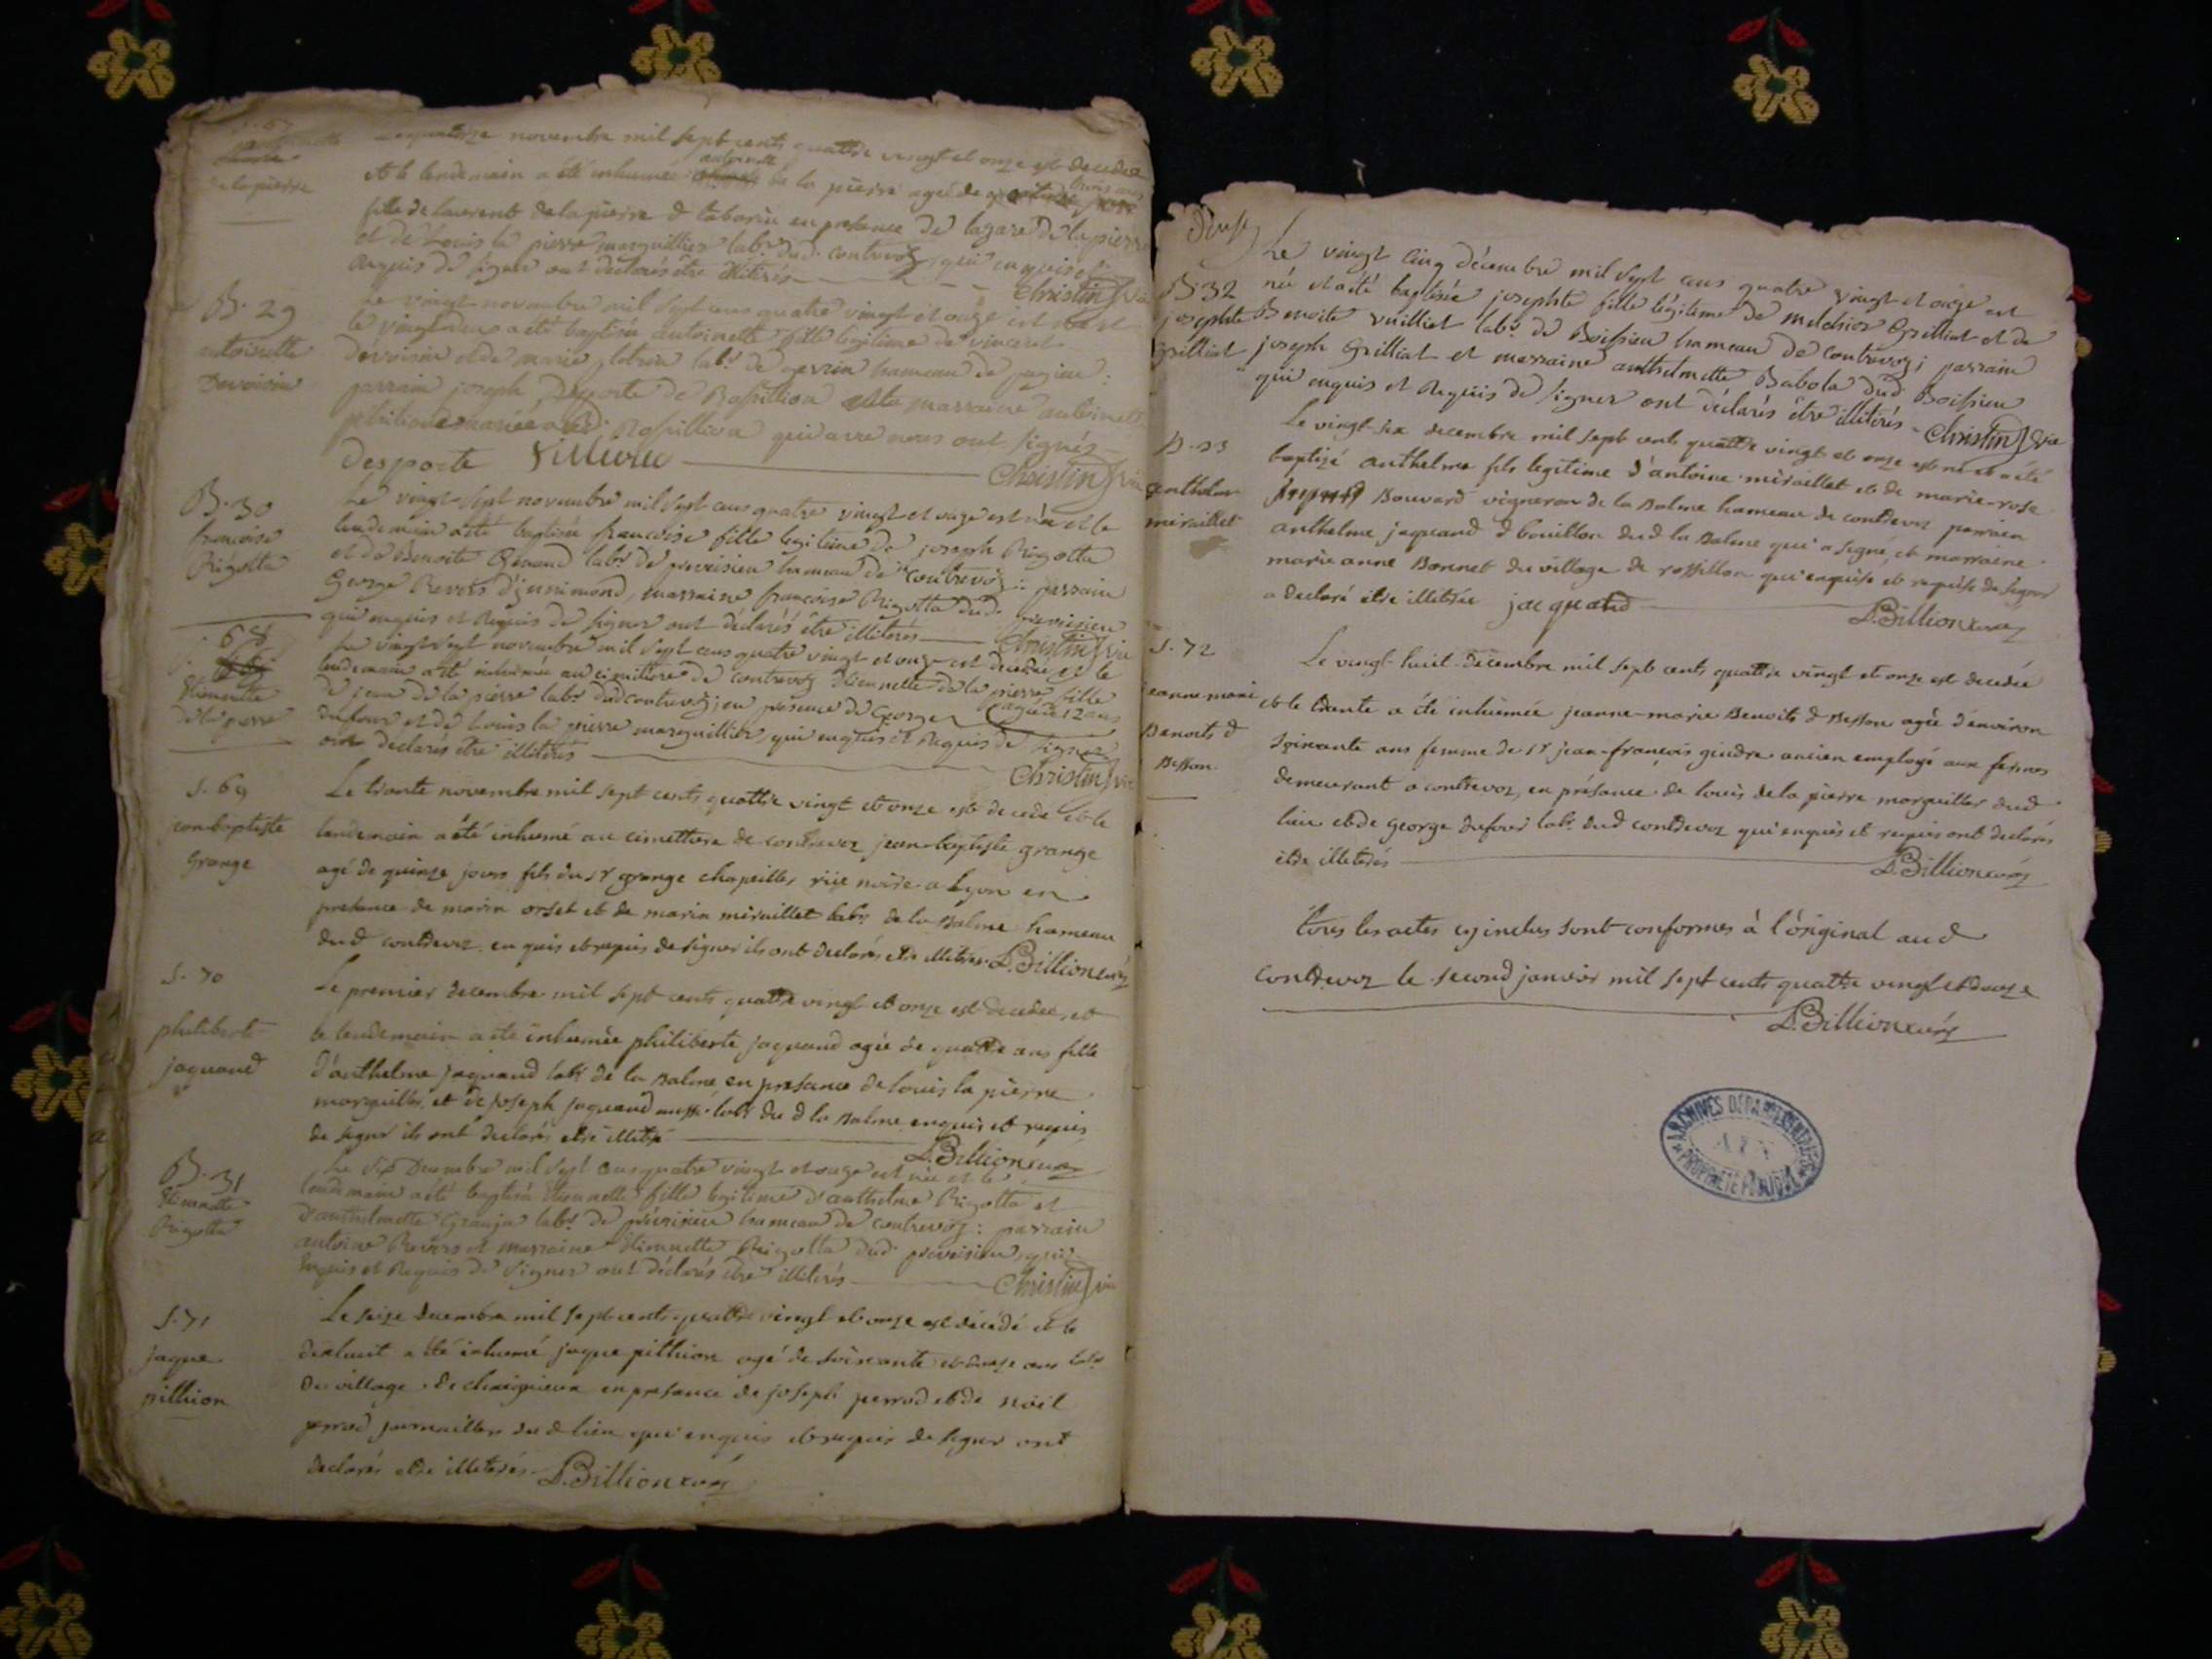 Le quatorze novembre mil sept cents quattre vingt et onze est decedée
antoinette
et le lendemain a été inhumée de la pierre agée de trois ans
de la pierre
fille de laurent de la pierre d taborin en presence de lazare de la pierre
et de Louis la pierre marguillier labr. dud. contrevoz, qui enquis et
Requis de signer ont declarés être illiterés
Christin vic
B. 29
antoinette
Devoisin
Le vingt novembre mil sept cens quatre vingt et onze est née et
le vingt deux a été baptisée antoinette fille legitime de vincent
Devoisin et de marie labr. de hameau de pugieu :
parrain joseph Desporte de Rossillion et la marraine antoinette
Rossillion qui avec nous ont signés
Desporte
Christin vic
B. 30
francoise
Rigotta
Le vingt-sept novembre mil sept cens quatre vingt et onze est née et le
lendemain a été baptisée francoise fille legitime de joseph Rigotta
et de Benoite labr. de preveisieu hameau de Contrevoz : parrain
George Revers marraine francoise Rigotta dud. preveisieu
qui enquis et Requis de signer ont déclarés être illiterés
Christin vic
68
Etiennette
de la pierre
Le vingt sept novembre mil sept cens quatre vingt et onze est decedée et le
lendemain a été inhumée au cimittiere de contrevoz Etiennette de la pierre fille
agée de 12 ans
de jean de la pierre labr. dud contrevoz, en presence de George
dufour et de Louis la pierre marguillier, qui enquis et Requis de signer
ont declarés être illiterés
Christin vic
S. 69
jean baptiste
Grange
Le trante novembre mil sept cents quattre vingt et onze est decedé et le
lendemain a été inhumé au cimettiere de contrevoz jean-baptiste grange
agé de quinze jours fils du sr grange chapellier rüe noire a Lyon en
presance de marin orset et de marin miraillet labrs de la Balme hameau
dud contrevoz. enquis et requis de signer ils ont declarés etre illiterés. D. Billion curé
S. 70
philiberte
jaquand
Le premier decembre mil sept cents quattre vingt et onze est decedée, et
le lendemain a été inhumée philiberte jaquand agée de quattre ans fille
d'anthelme jaquand labr de la Balme, en presance de louis la pierre
marguillier, et de joseph jaquand aussi labr du d la Balme, enquis et requis
de signer ils ont declarés etre illitré
D. Billion curé
B. 31
Etiennette
Rigotta
Le six Decembre mil sept cens quatre vingt et onze est née et le
lendemain a été baptisée Etiennette fille legitime d'anthelme Rigotta et
d'anthelmette Granja labr. de préveisieu hameau de contrevoz : parrain
antoine Revers et marraine Etiennette Rigotta dud. preveisieu, qui
Enquis et Requis de signer ont déclarés être illiterés
Christin vic
S. 71
jaque
pillion
Le seize decembre mil sept cents quattre vingt et onze est décédé et le
dixhuit a été inhumé jaque pithion agé de soixante et douze ans labr
du village de cheignieux en presance de joseph perrod et de noël
perrod journaillers du d lieu qui enquis et requis de signer ont
declarés etre illeterés. D. Billion curé
Le vingt cinq décembre mil sept cens quatre vingt et onze est
B. 32
josephte
Grilliat
née et a été baptisée josephte fille légitime de melchior Grilliat et de
Benoite vuilliet labr. de Boissieu hameau de contrevoz ; parrain
joseph Grilliat et marraine anthelmette Babola dud Boissieu
qui enquis et Requis de signer ont déclarés être illiterés - Christin vic
B. 33
anthelme
miraillet
Le vingt six decembre mil sept cents quattre vingt et onze est né et a été
baptizé anthelme fils legitime d'antoine miraillet et de marie-rose
Bouvard vigneron de la Balme hameau de contrevoz parrain
anthelme jaquand d bouillon dud la Balme qui a signé, et marraine
marie anne Bonnet du village de rossillon qui enquise et requise de signer
a declaré etre illetrée jacquand
D. Billion curé
S. 72
jeanne-marie
Benoits d
Besson
Le vingt-huit decembre mil sept cents quattre vingt et onze est decedée
et le trante a été inhumée jeanne-marie Benoits d Besson agée d'environ
soixante ans femme de sr jean-françois gindre ancien employé aux fermes
demeurant a contrevoz, en présance de louis de la pierre marguiller dud
lieu et de george dufour labr. dud contrevoz qui enquis et requis ont declarés
etre illeterés
D. Billion curé
Tous les actes cy inclus sont conformes à l'original aud
contrevoz le second janvier mil sept cents quattre vingt et douze
D. Billion curé
ARCHIVES DÉPARTEMENTALES
AIN
PROPRIÉTÉ PUBLIQUE